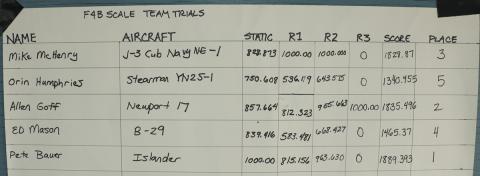 F4B SCALE TEAM TRIALS
NAME AIRCRAFT STATIC R1 R2 R3 SCORE PLACE
Mike McHenry J-3 Cub Navy NE-1 1000.00 1000.000 0 1829.87 3
Orin Humphries Stearman YN2S-1 750.608 536.119 643.575 0 1340.455 5
Allen Goff Neuport 17 857.664 812.323 955.663 1000.00 1835.496 2
ED Mason B-29 839.416 583.481 668.427 0 1465.37 4
Pete Bauer Islander 1000.00 815.156 963.630 0 1889.393 1